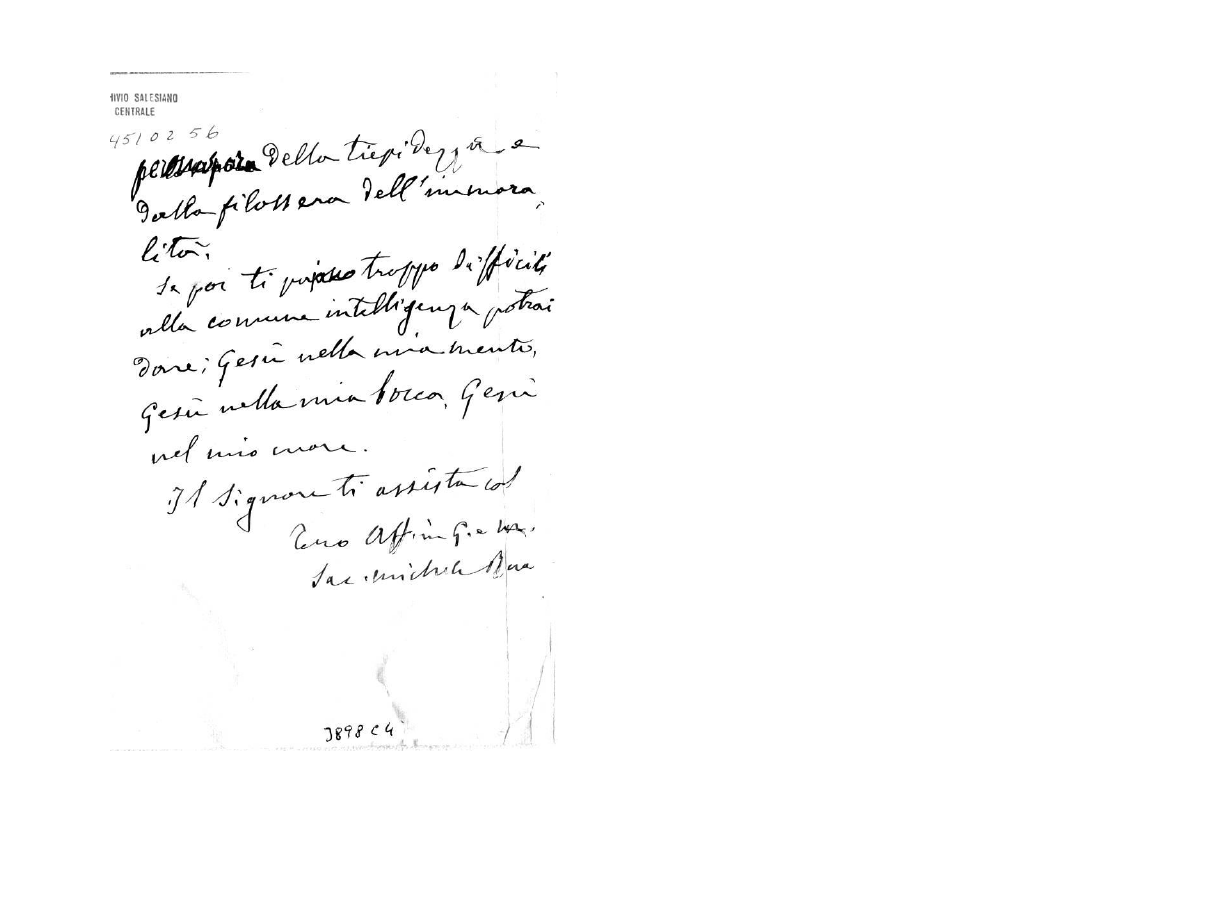 HIVIO SALESIANO
CENTRALE
4510256
della tiepidezza e
dalla filossera dell'immora
lità.
Se poi ti troppo difficili
alla comune intelligenza potrai
dare; Gesù nella mia mente,
Gesù nella mia bocca, Gesù
nel mio cuore.
Il Signore ti assista col
Tuo Aff. in G. e M.
Sac. Michele Rua
3898 C4